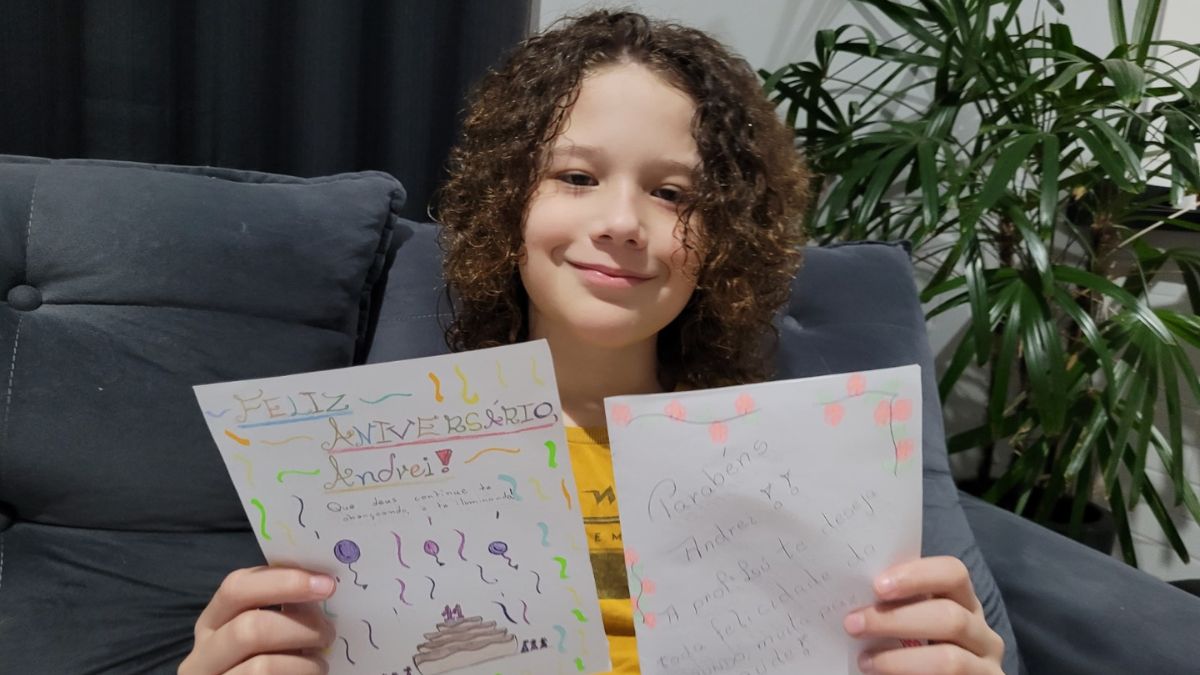 FELIZ
ANIVERSÁRIO,
Andrei!
Que deus continue te
abençoando, e te iluminando!
11
Parabéns
Andrei!!
A prof Sô te deseja
toda felicidade do
mundo, muita paz